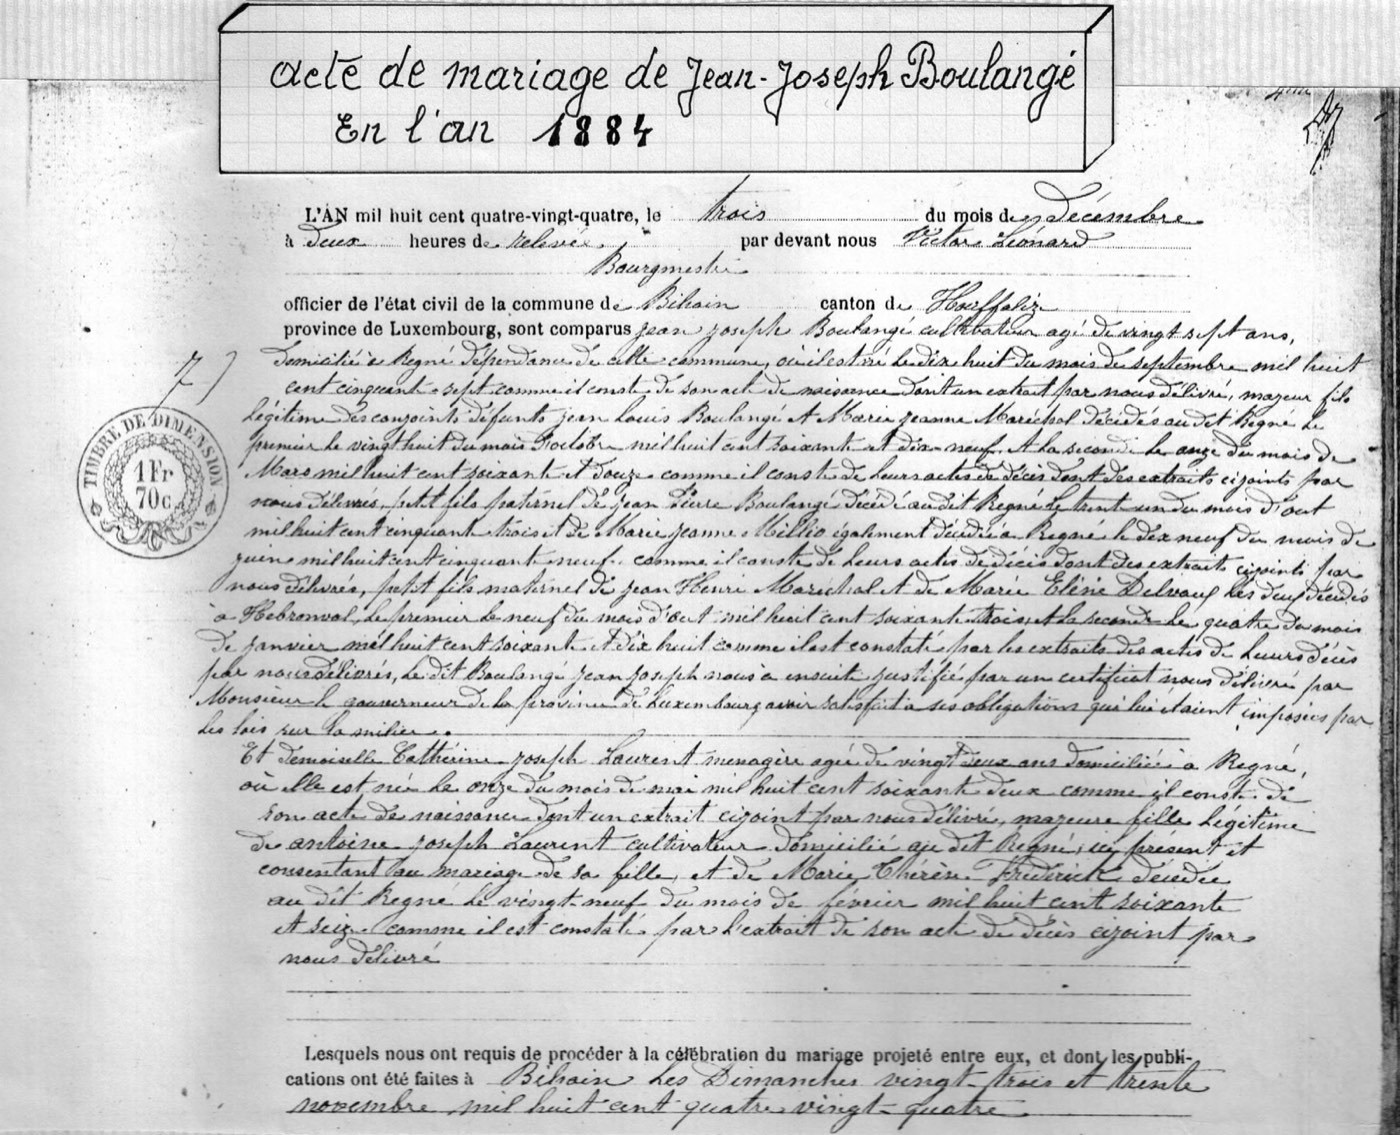 acte de mariage de Jean-Joseph Boulangé
En l'an 1884
L'AN mil huit cent quatre-vingt-quatre, le trois du mois de Décembre
à deux heures de relevée, par devant nous Victor Léonard
Bourgmestre
officier de l'état civil de la commune de Bihain canton de Houffalize
province de Luxembourg, sont comparus Jean Joseph Boulangé cultivateur agé de vingt sept ans,
7)
domicilié à Regné dépendance de cette commune, où il est né le dix huit du mois de septembre mil huit
cent cinquante-sept comme il conste de son acte de naissance dont un extrait par nous délivré, majeur fils
légitime des conjoints défunts Jean Louis Boulangé et Marie Jeanne Maréchal décédés au dit Regné le
premier le vingt huit du mois d'octobre mil huit cent soixante et dix-neuf et la seconde le onze du mois de
Mars mil huit cent soixante et douze comme il conste de leurs actes de décès dont des extraits cijoints par
nous délivrés, petit fils paternel de Jean Pierre Boulangé décédé au dit Regné le trent un du mois d'out
mil huit cent cinquante trois et de Marie Jeanne Millio également décédée à Regné le dix neuf du mois de
juin mil huit cent cinquante neuf comme il conste de leurs actes de décès dont des extraits cijoints par
nous délivrés, petit fils maternel de Jean Henri Maréchal et de Marie Eléne Delvaux les deux décédés
à Hebronval, le premier le neuf du mois d'out mil huit cent soixante trois et la seconde le quatre du mois
de janvier mil huit cent soixante et dix huit comme il est constaté par les extraits des actes de leurs décès
par nous délivrés, le dit Boulangé Jean Joseph nous a ensuite justifié par un certificat nous délivré par
Monsieur le gouverneur de la province de Luxembourg avoir satisfait à ses obligations qui lui étaient imposées par
les lois sur la milice.
Et demoiselle Cathérine Joseph Laurent menagère agée de vingt deux ans domiciliée à Regné,
où elle est née le onze du mois de mai mil huit cent soixante deux comme il conste de
son acte de naissance dont un extrait cijoint par nous délivré, majeure fille légitime
de antoine Joseph Laurent cultivateur domicilié au dit Regné, ici présent et
consentant au mariage de sa fille, et de Marie Thérèse Frederick décédée
au dit Regné le vingt neuf du mois de février mil huit cent soixante
et seize comme il est constaté par l'extrait de son acte de décès cijoint par
nous délivré
TIMBRE DE DIMENSION
1 Fr
70c.
Lesquels nous ont requis de procéder à la célébration du mariage projeté entre eux, et dont les publi-
cations ont été faites à Bihain les Dimanches vingt-trois et trente
novembre mil huit cent quatre vingt-quatre